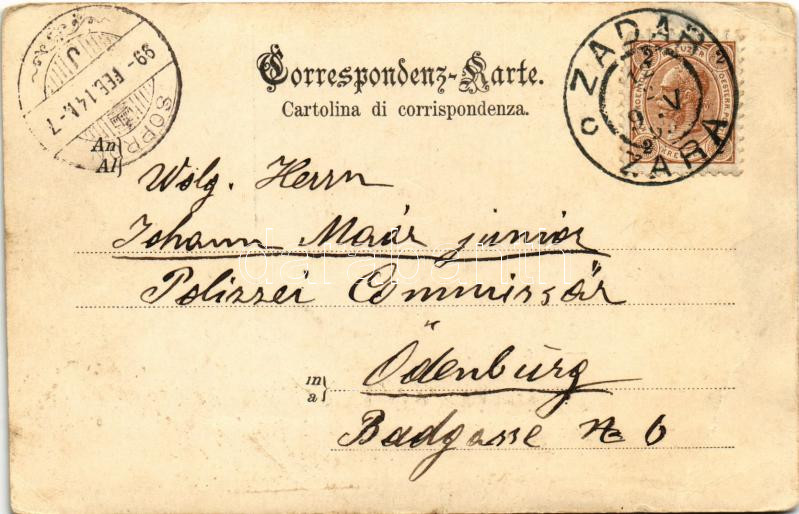 Correspondenz-Karte.
Cartolina di corrispondenza.
SOPR
99- FEB. 14 N-7
ZADAR
ZARA
An
Al
Wolg. Herrn
Johann Maár junior
Polizzei Commissär
in
a
Ödenburg
Badgasse No 6
darabanth